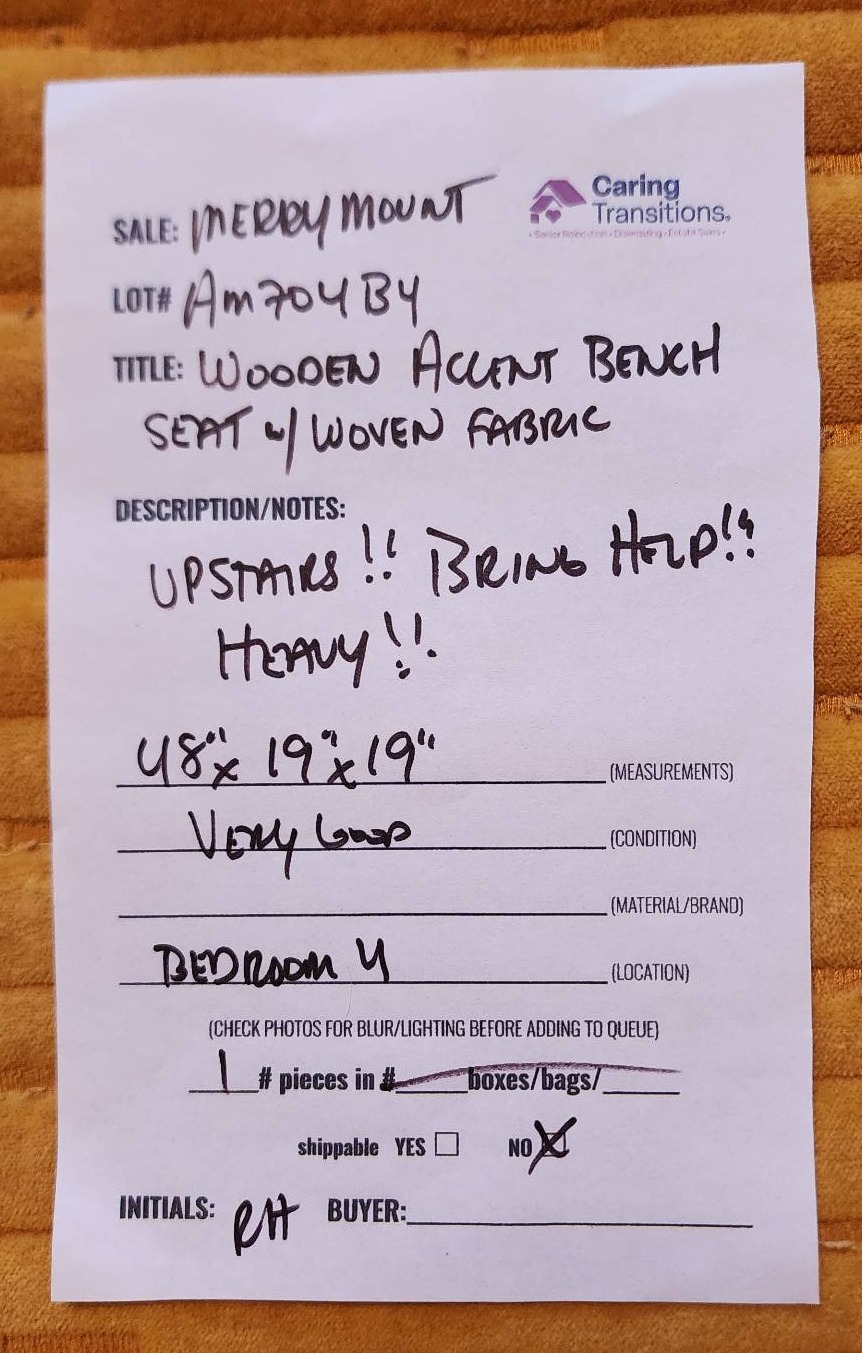 Caring
SALE: MERRYMOUNT Transitions®
• Senior Relocation • Downsizing • Estate Sales •
LOT# Am704B4
TITLE: WOODEN ACCENT BENCH
SEAT w/ WOVEN FABRIC
DESCRIPTION/NOTES:
UPSTAIRS!! BRING HELP!!
HEAVY!!
48" x 19" x 19" (MEASUREMENTS)
VERY GOOD (CONDITION)
(MATERIAL/BRAND)
BEDROOM 4 (LOCATION)
(CHECK PHOTOS FOR BLUR/LIGHTING BEFORE ADDING TO QUEUE)
1 # pieces in # boxes/bags/
shippable YES NO
INITIALS: RH BUYER: